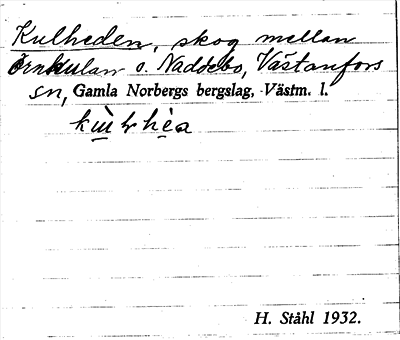 Kulheden, skog mellan
Örnkulan o. Naddebo, Västanfors
sn, Gamla Norbergs bergslag, Västm. l.
H. Ståhl 1932.